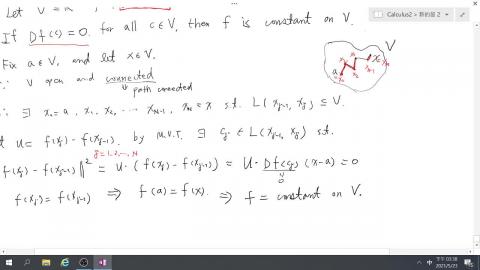 Let V ⊆ ℝ
If Df(c)=0. for all c∈V, then f is constant on V.
Fix a∈V, and let x∈V.
∵ V open and connected
path connected
∴ ∃ x₀=a, x₁, x₂, ⋯ x_{N-1}, x_N=x s.t. L(x_{j-1}, x_j) ⊆ V.
Let u= f(x_j) - f(x_{j-1}). by M.V.T. ∃ c_j ∈ L(x_{j-1}, x_j) s.t.
j=1,2,⋯,N
f(x_j) - f(x_{j-1})‖² = u·(f(x_j) - f(x_{j-1})) = u·Df(c_j)(x-a)=0
0
f(x_j) = f(x_{j-1}) ⇒ f(a)=f(x). ⇒ f = constant on V.
V
a
x
Calculus2 > 新的節 2
下午 03:38
2021/5/23